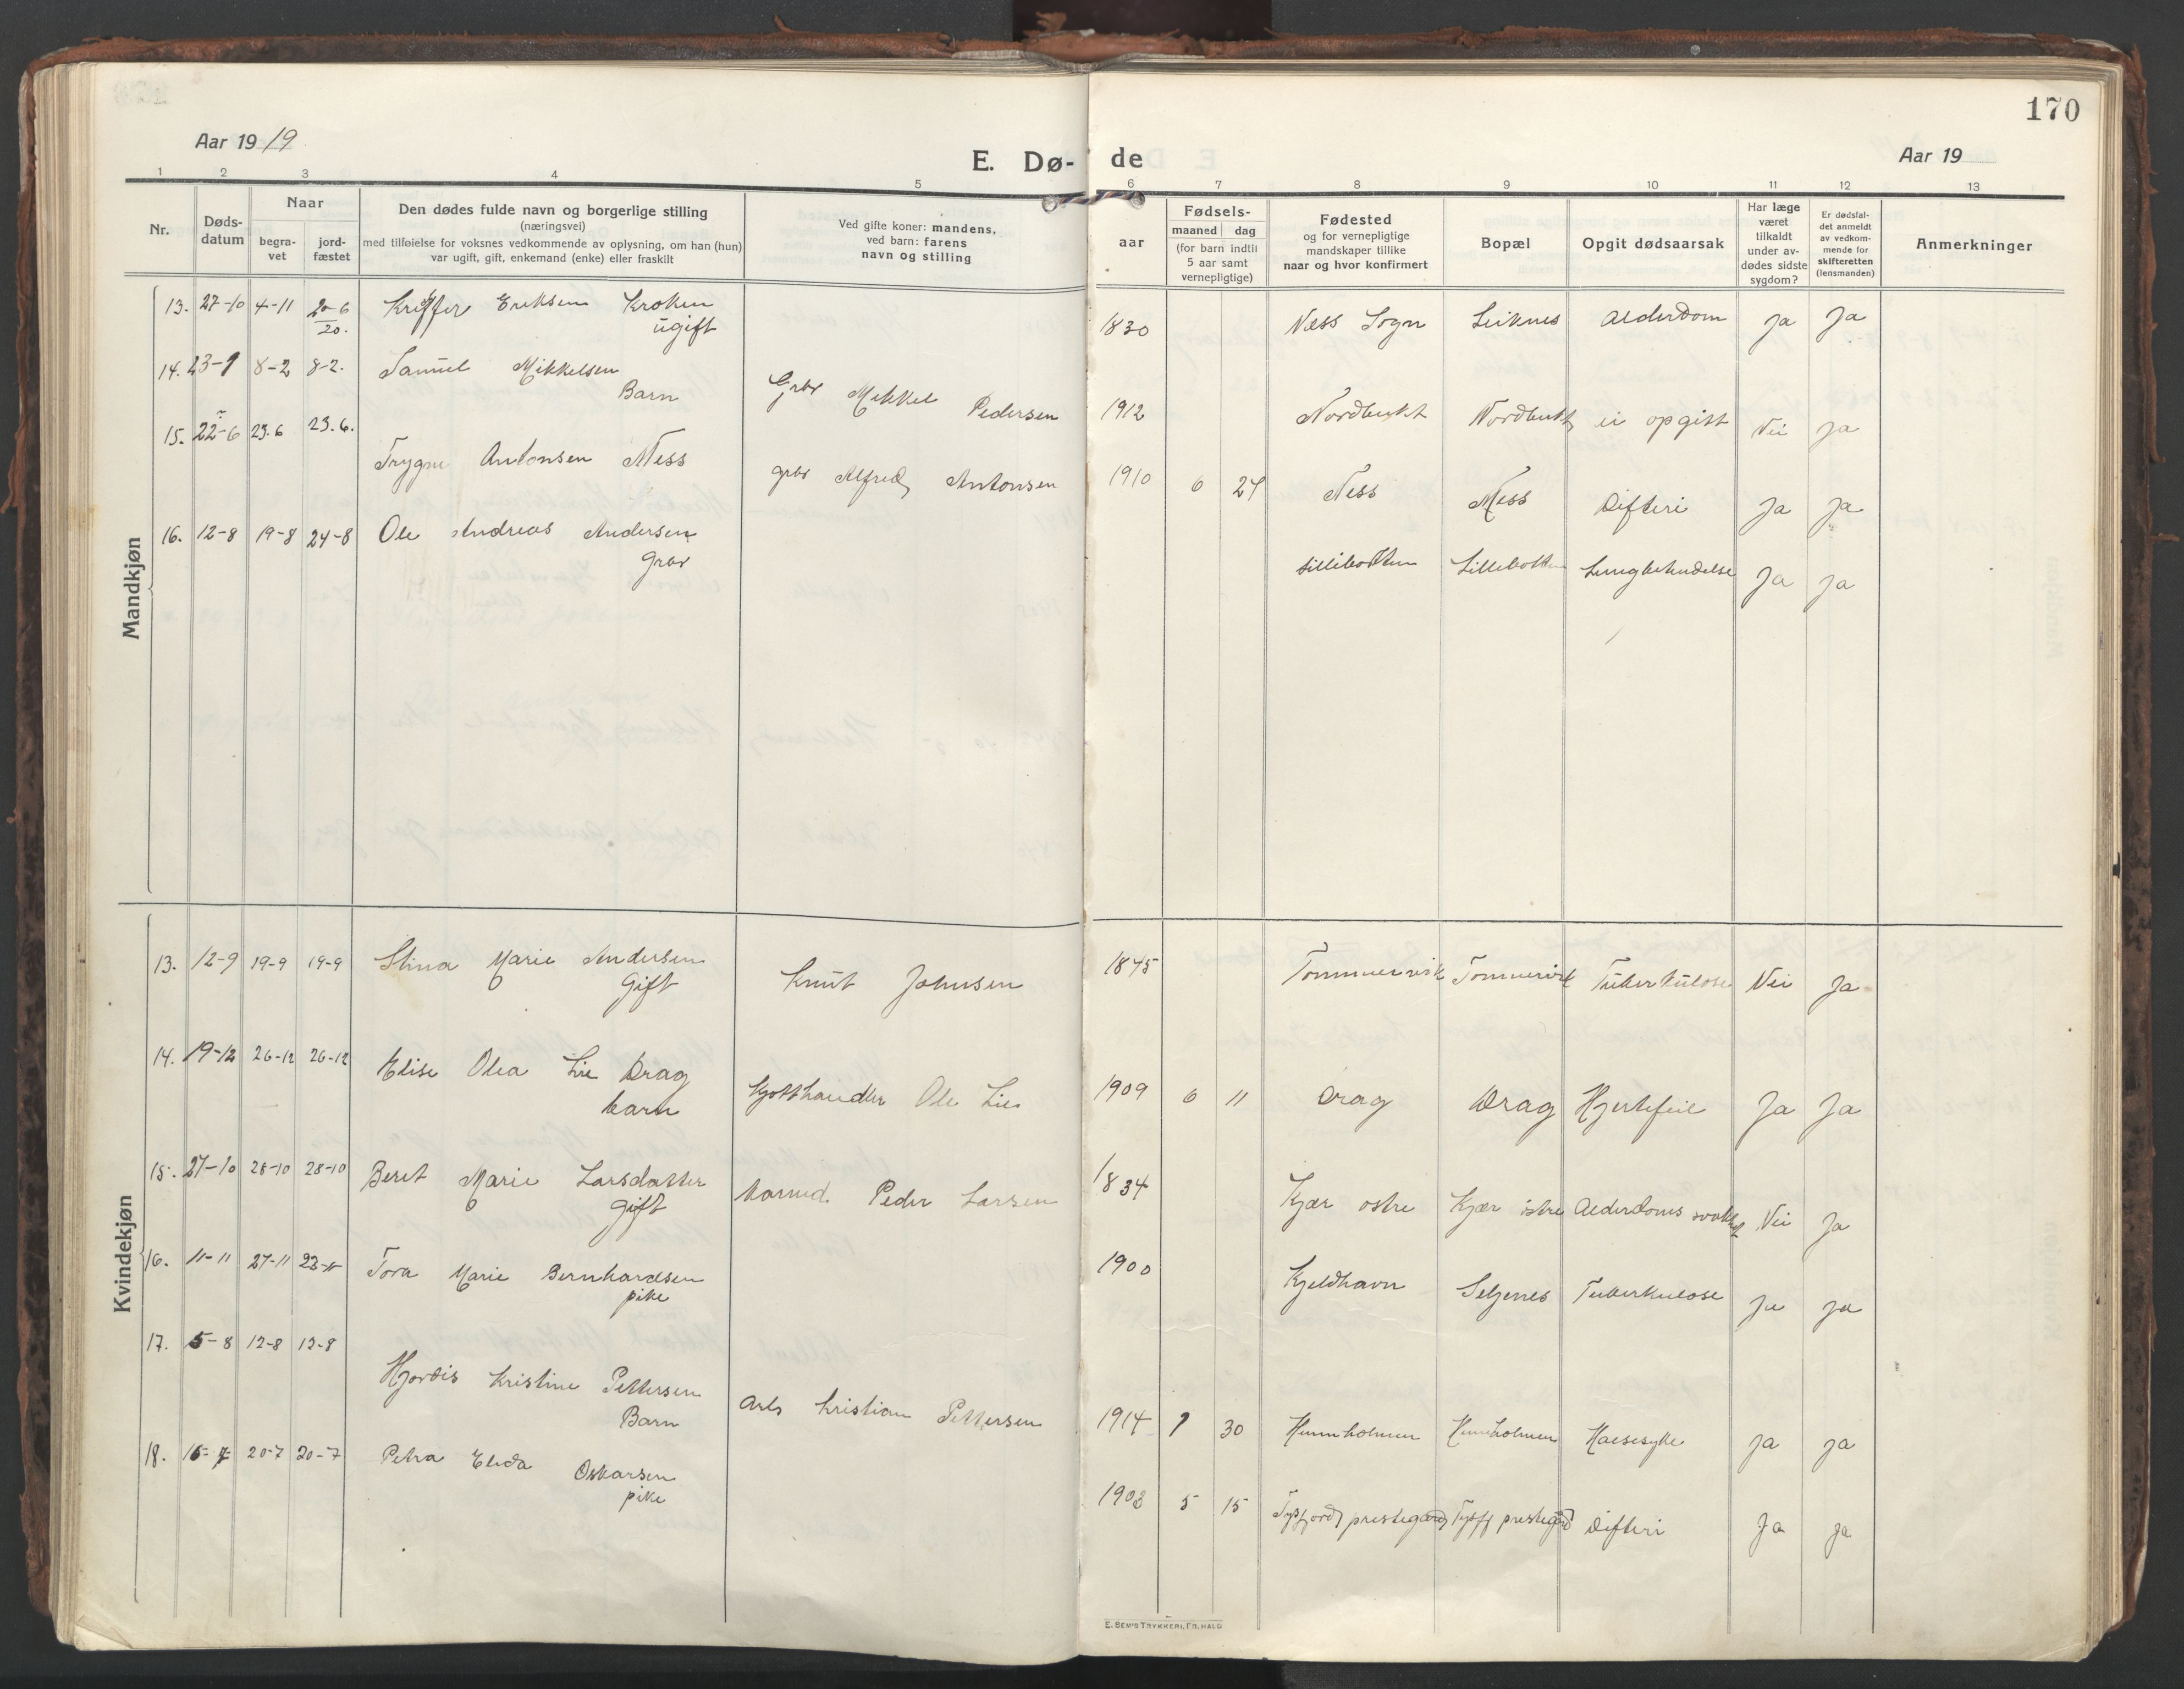 170
Aar 19 19
E. Dø-
de
Aar 19
1 2 3 4 5 6 7 8 9 10 11 12 13
Nr.
Døds-
datum
Naar
begra-
vet
jord-
fæstet
Den dødes fulde navn og borgerlige stilling
(næringsvei)
med tilføielse for voksnes vedkommende av oplysning, om han (hun)
var ugift, gift, enkemand (enke) eller fraskilt
Ved gifte koner: mandens,
ved barn: farens
navn og stilling
aar
Fødsels-
maaned dag
(for barn indtil
5 aar samt
vernepligtige)
Fødested
og for vernepligtige
mandskaper tillike
naar og hvor konfirmert
Bopæl
Opgit dødsaarsak
Har læge
været
tilkaldt
under av-
dødes sidste
sygdom?
Er dødsfal-
det anmeldt
av vedkom-
mende for
skifteretten
(lensmanden)
Anmerkninger
Mandkjøn
13. 27-10 4-11 20-6 Eriksen Kroken 1830 Næss Sogn Leiknes Alderdom Ja Ja
20.
ugift
14. 23-9 8-2 8-2. Samuel Mikkelsen
Barn
Grbr Mikkel Pedersen 1912 Nordbukt Nordbukt ei opgitt Nei Ja
15. 22-6 23.6 23.6.
Trygve Antonsen Ness grbr Alfred Antonsen 1910 6 24 Ness Ness Difteri Ja Ja
16. 12-8 19-8 24-8 Ole Andreas Andersen
Grbr
Lillebotten Lillebotten Lungbetendelse Ja Ja
Kvindekjøn
13. 12-9 19-9 19-9 Stina Marie Andersen
Gift
Knut Johnsen 1845 Tommervik Tommervik Tuberkulose Nei Ja
14. 19-12 26-12 26-12 Elise Olea Lie Drag
barn
Kjøtthandler Ole Lie 1909 6 11 Drag Drag Hjertefeil Ja Ja
15. 27-10 28-10 28-10 Beret Marie Larsdatter
gift
Peder Larsen 1834 Kjær østre Kjær østre Alderdoms Nei Ja
16. 11-11 27-11 23-11 Tora Marie Bernhardsen
pike
1900 Kjeldhavn Seljenes Tuberkulose Ja Ja
17. 5-8 12-8 12-8
Hjordis Kristine Pettersen
Barn
Arb Kristian Pettersen 1914 9 30 Hunnholmen Hunnholmen Halsesyke Ja Ja
18. 15-7 20-7 20-7 Petra Elida Oskarsen
pike
1903 5 15 Tysfjord prestegård Tysfj prestegård Difteri Ja Ja
E. SEM'S TRYKKERI, FR.HALD